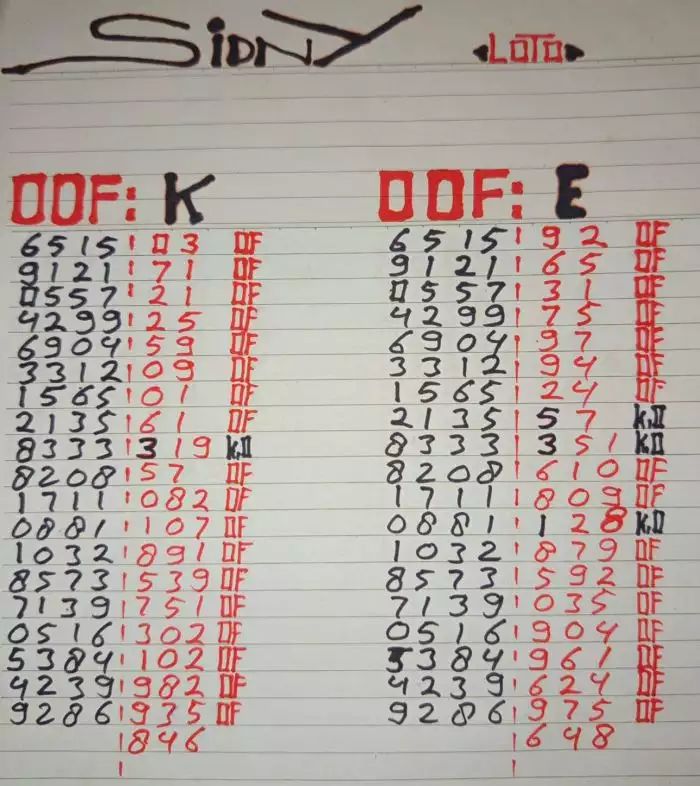 SiDNY LOTO
OOF: K
6515 03 OF
9121 71 OF
0557 21 OF
4299 25 OF
6904 59 OF
3312 09 OF
1565 01 OF
2135 61 OF
8333 319 K,O
8208 57 OF
1711 082 OF
0881 107 OF
1032 891 OF
8573 539 OF
7139 751 OF
0516 302 OF
5384 102 OF
4239 982 OF
9286 935 OF
846
OOF: E
6515 92 OF
9121 65 OF
0557 31 OF
4299 75 OF
6904 97 OF
3312 94 OF
1565 24 OF
2135 57 K,O
8333 351 KO
8208 610 OF
1711 809 OF
0881 128 K,O
1032 879 OF
8573 592 OF
7139 035 OF
0516 904 OF
5384 961 OF
4239 624 OF
9286 975 OF
648